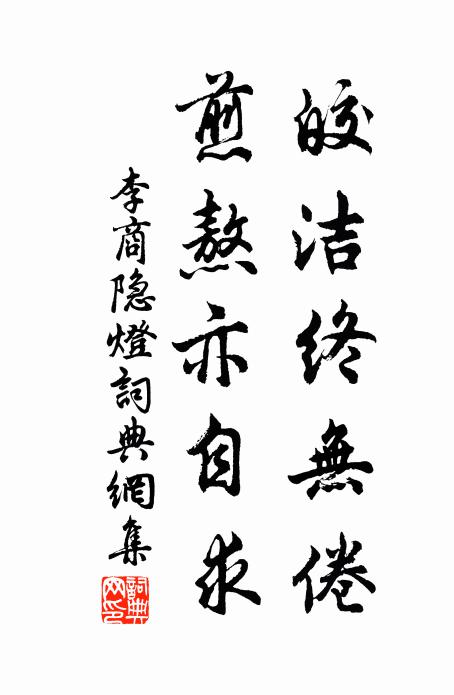 皎洁終無倦
煎熬亦自求
李商隐燈詞典網集
詞典